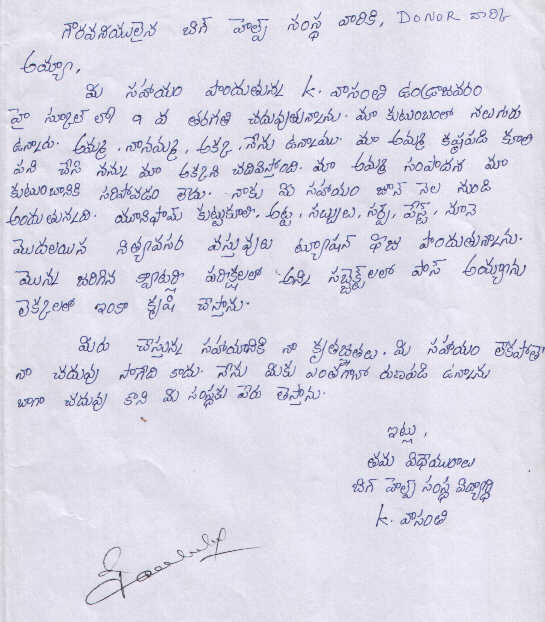 గౌరవనీయులైన బిగ్ హెల్ప్ సంస్థ వారికి, DONOR వారికి
అయ్యా,
మీ సహాయం పొందుతున్న K. వాసంతి ఉండ్రాజవరం
హై స్కూల్ లో 9 వ తరగతి చదువుతున్నాను. మా కుటుంబంలో నలుగురు
ఉన్నారు. అమ్మ, నానమ్మ, అక్క, నేను ఉన్నాము. మా అమ్మ కష్టపడి కూలి
పని చేసి నన్ను మా అక్కని చదివిస్తోంది. మా అమ్మ సంపాదన మా
కుటుంబానికి సరిపోవడం లేదు. నాకు మీ సహాయం జూన్ నెల నుండి
అందుతున్నది. యూనిఫామ్ కుట్టుకూలి, అట్ట, సబ్బులు, సర్ఫ్, పేస్ట్, నూనె
మొదలయిన నిత్యావసర వస్తువులు ట్యూషన్ ఫీజు పొందుతున్నాను.
మొన్న జరిగిన క్వార్టర్లీ పరీక్షలలో అన్ని సబ్జెక్ట్ లలో పాస్ అయ్యాను
లెక్కలలో ఇంకా కృషి చేస్తాను.
మీరు చేస్తున్న సహాయానికి నా కృతజ్ఞతలు. మీ సహాయం లేకపోతే
నా చదువు సాగేది కాదు. నేను మీకు ఎంతగానో రుణపడి ఉన్నాను
బాగా చదువు కొని మీ సంస్థకు పేరు తెస్తాను.
ఇట్లు,
తమ విధేయురాలు
బిగ్ హెల్ప్ సంస్థ విద్యార్థి
K. వాసంతి